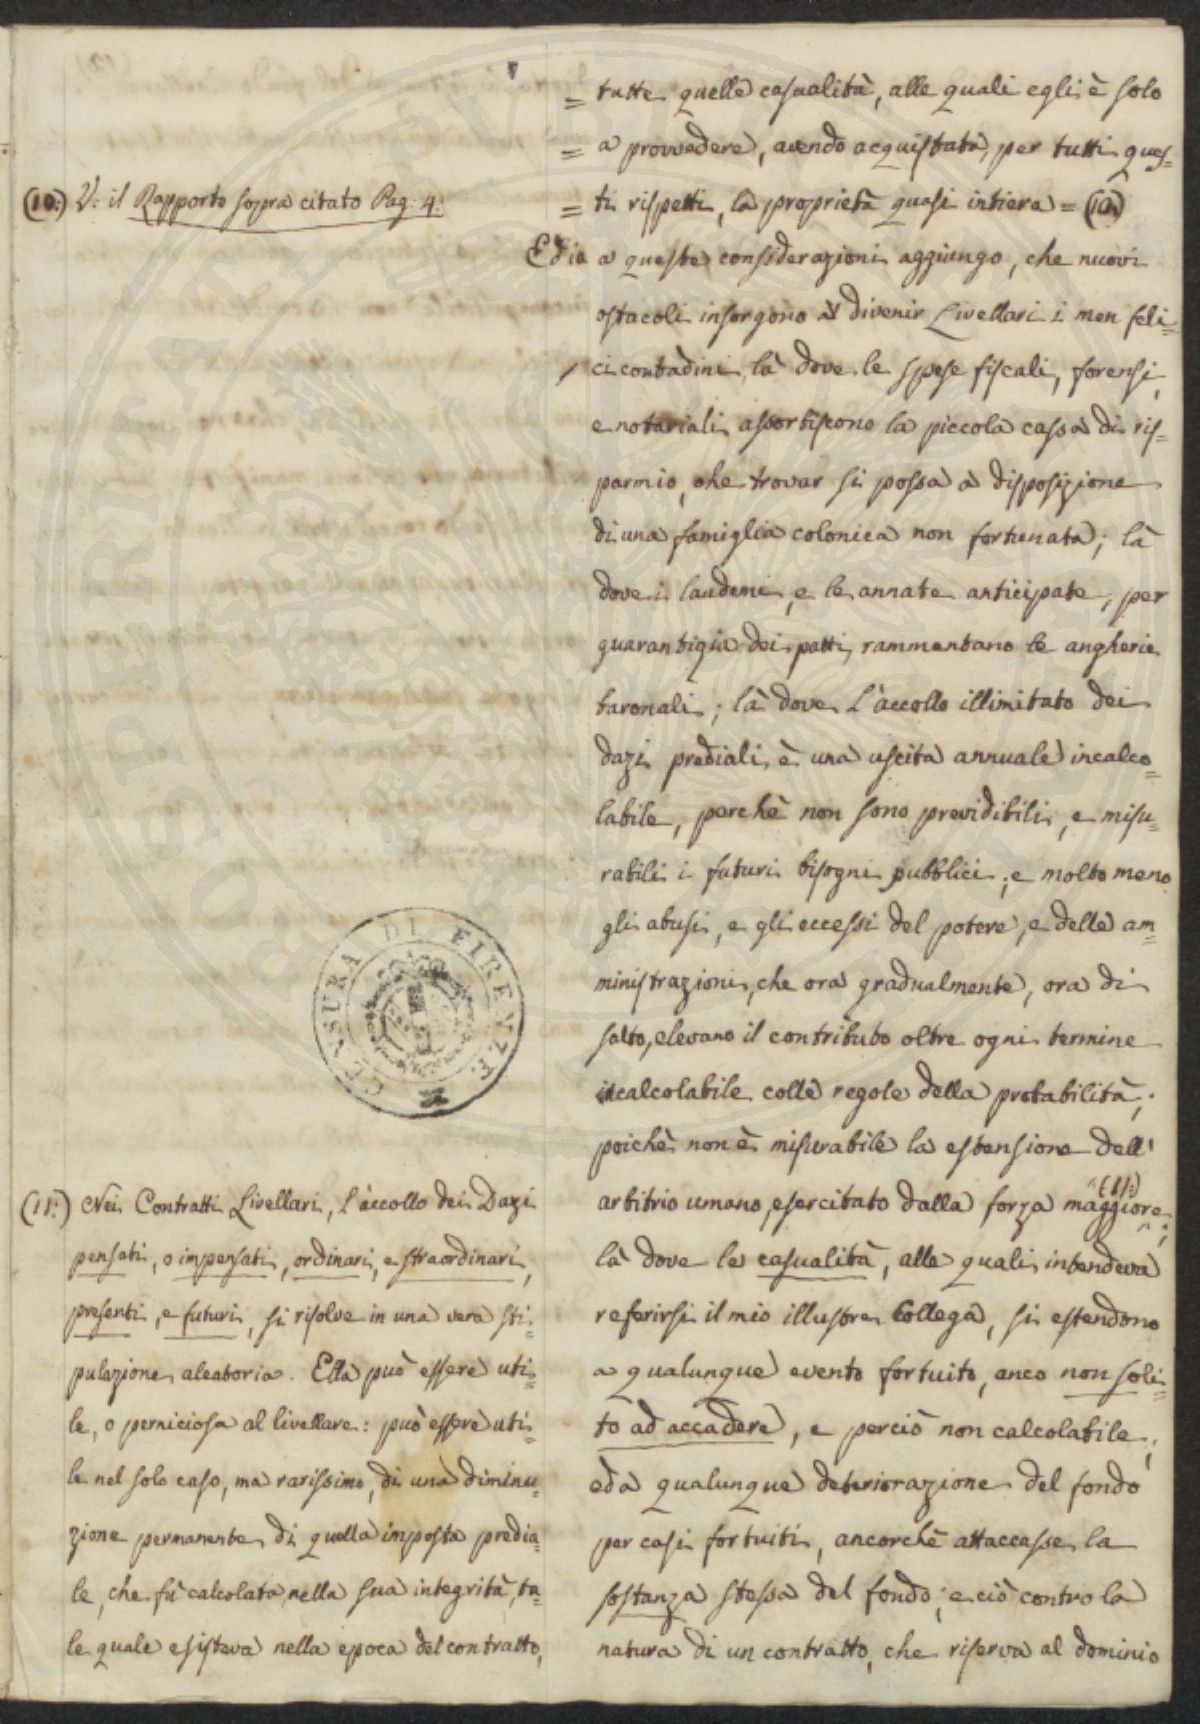 = tutte quelle casualità, alle quali egli è solo
= a provvedere, avendo acquistata, per tutti ques=
= ti rispetti, la proprietà quasi intiera = (10.)
Ed io a queste considerazioni aggiungo, che nuovi
ostacoli insorgono a divenir Livellari i men feli=
ci contadini, là dove le spese fiscali, forensi,
e notariali assorbiscono la piccola cassa di ris=
parmio, che trovar si possa a disposizione
di una famiglia colonica non fortunata; là
dove i laudemi, e le annate anticipate, per
guarantigia dei patti, rammentano le angherie
baronali; là dove l'accollo illimitato dei
dazi prediali, è una uscita annuale incalco=
labile, perchè non sono previdibili, e misu=
rabili i futuri bisogni pubblici; e molto meno
gli abusi, e gli eccessi del potere, e delle am=
ministrazioni, che ora gradualmente, ora di
salto, elevano il contributo oltre ogni termine
calcolabile colle regole della probabilità;
poichè non è misurabile la estensione dell'
arbitrio umano, esercitato dalla forza maggiore (11:);
là dove le casualità, alle quali intendeva
referirsi il mio illustre Collega, si estendono
a qualunque evento fortuito, anco non soli=
to ad accadere, e perciò non calcolabile;
ed a qualunque deteriorazione del fondo
per casi fortuiti, ancorchè attaccasse la
sostanza stessa del fondo; e ciò contro la
natura di un contratto, che riserva al dominio
(10:) V: il Rapporto sopra citato Pag: 4:
CENSURA DI FIRENZE
(11:) Nei Contratti Livellari, l'accollo dei Dazi
pensati, o impensati, ordinari, e straordinari,
presenti, e futuri, si risolve in una vera sti=
pulazione aleatoria. Ella può essere uti=
le, o perniciosa al livellare: può essere uti=
le nel solo caso, ma rarissimo, di una diminu=
zione permanente di quella imposta predia=
le, che fù calcolata nella sua integrità, ta=
le quale esisteva nella epoca del contratto,